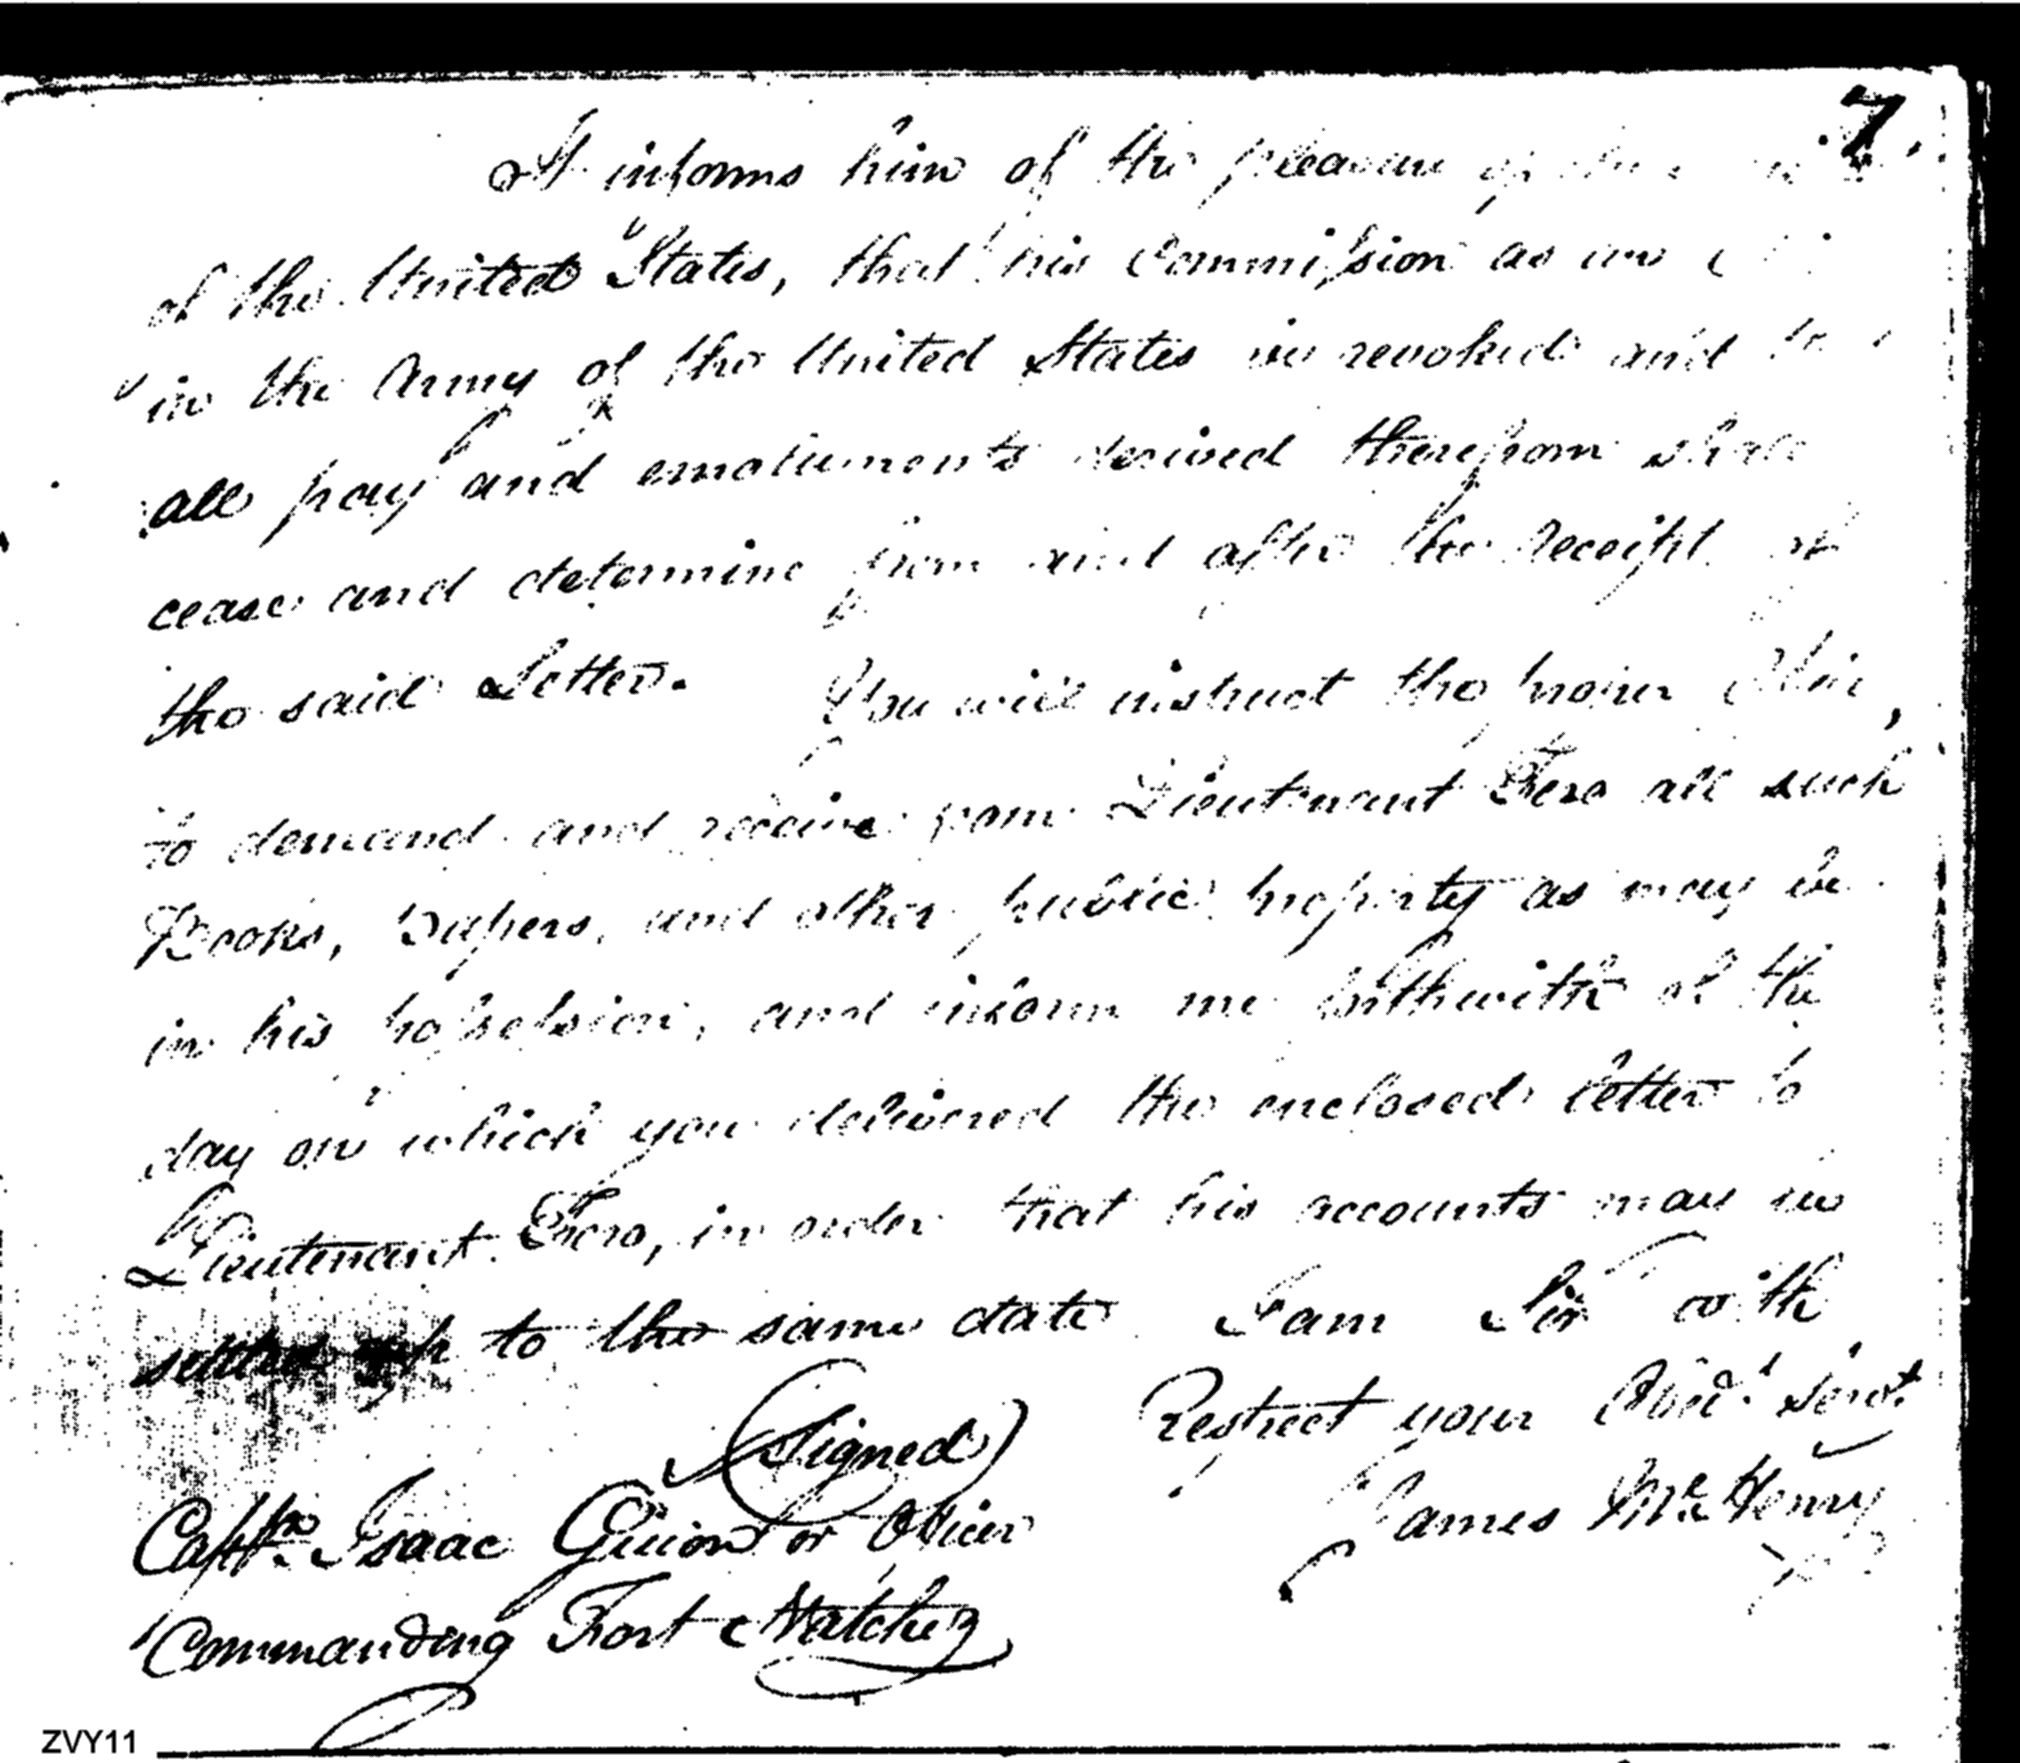 7.
It informs him of the pleasure of the
of the United States, that his Commission as an
in the Army of the United States is revoked and
all pay and emoluments derived therefrom shall
cease and determine from and after the receipt of
the said Letter. You will instruct the proper
to demand and receive from Lieutenant Fero all such
Books, Papers, and other public property as may be
in his possession, and inform me forthwith of the
day on which you delivered the enclosed letter to
Lieutenant Fero, in order that his accounts may be
settled up to the same date I am Sir with
Respect your Obed.t Serv.t
(Signed) James McHenry
Capt.n Isaac Guion or Officer
Commanding Fort Natchez
ZVY11